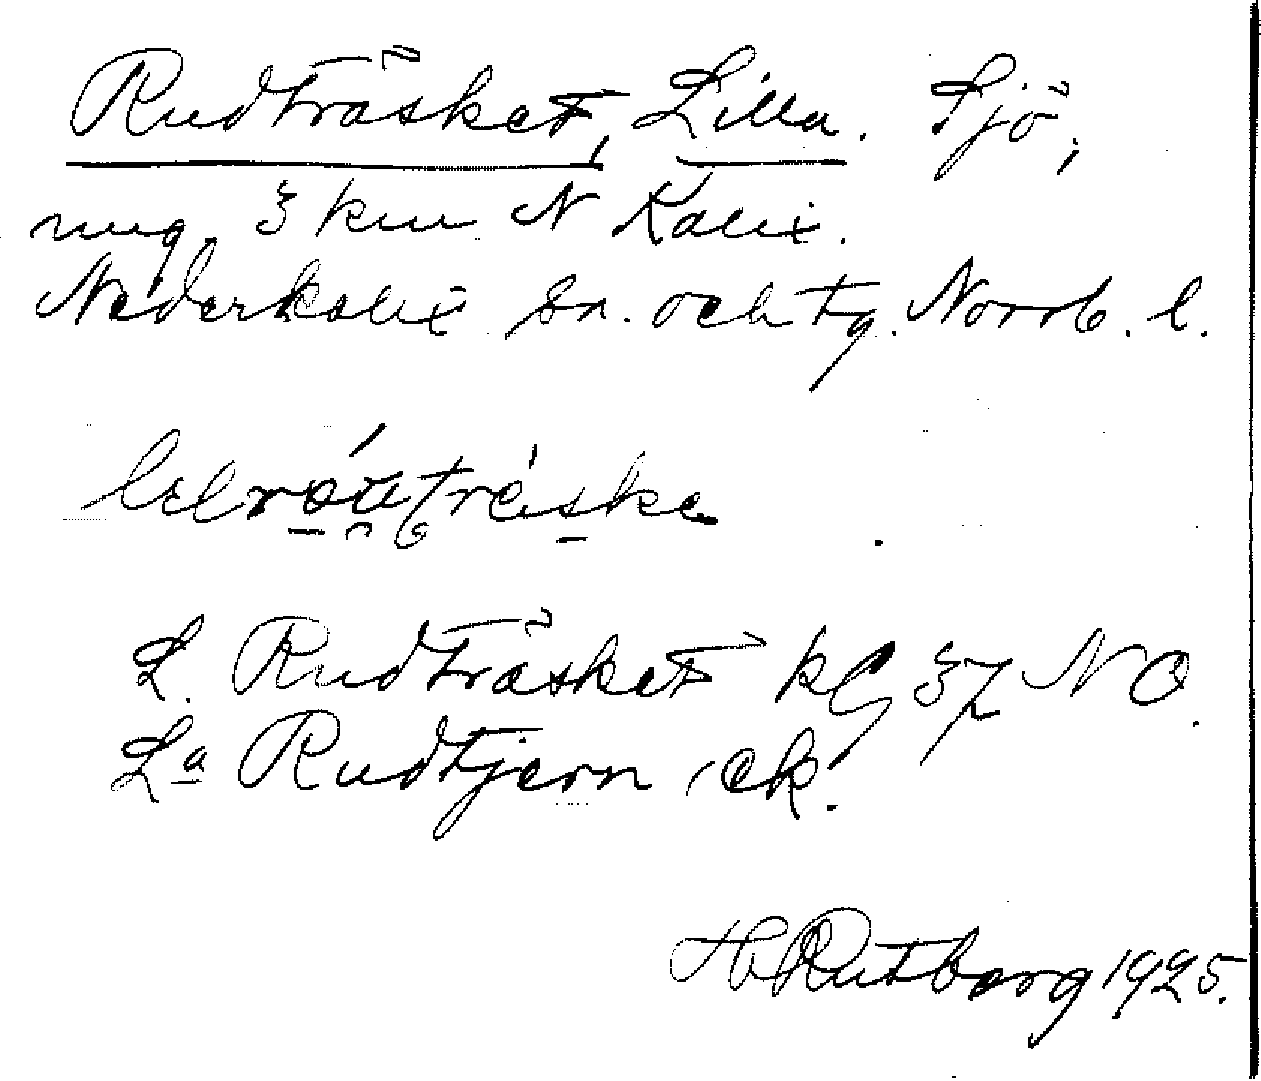 Rudträsket, Lilla. Sjö,
ung. 3 km N Kalix.
Nederkalix sn. och tg. Norrb. l.
L. Rudträsket kg 37 NO.
La Rudtjern ek.
H Rutberg 1925.